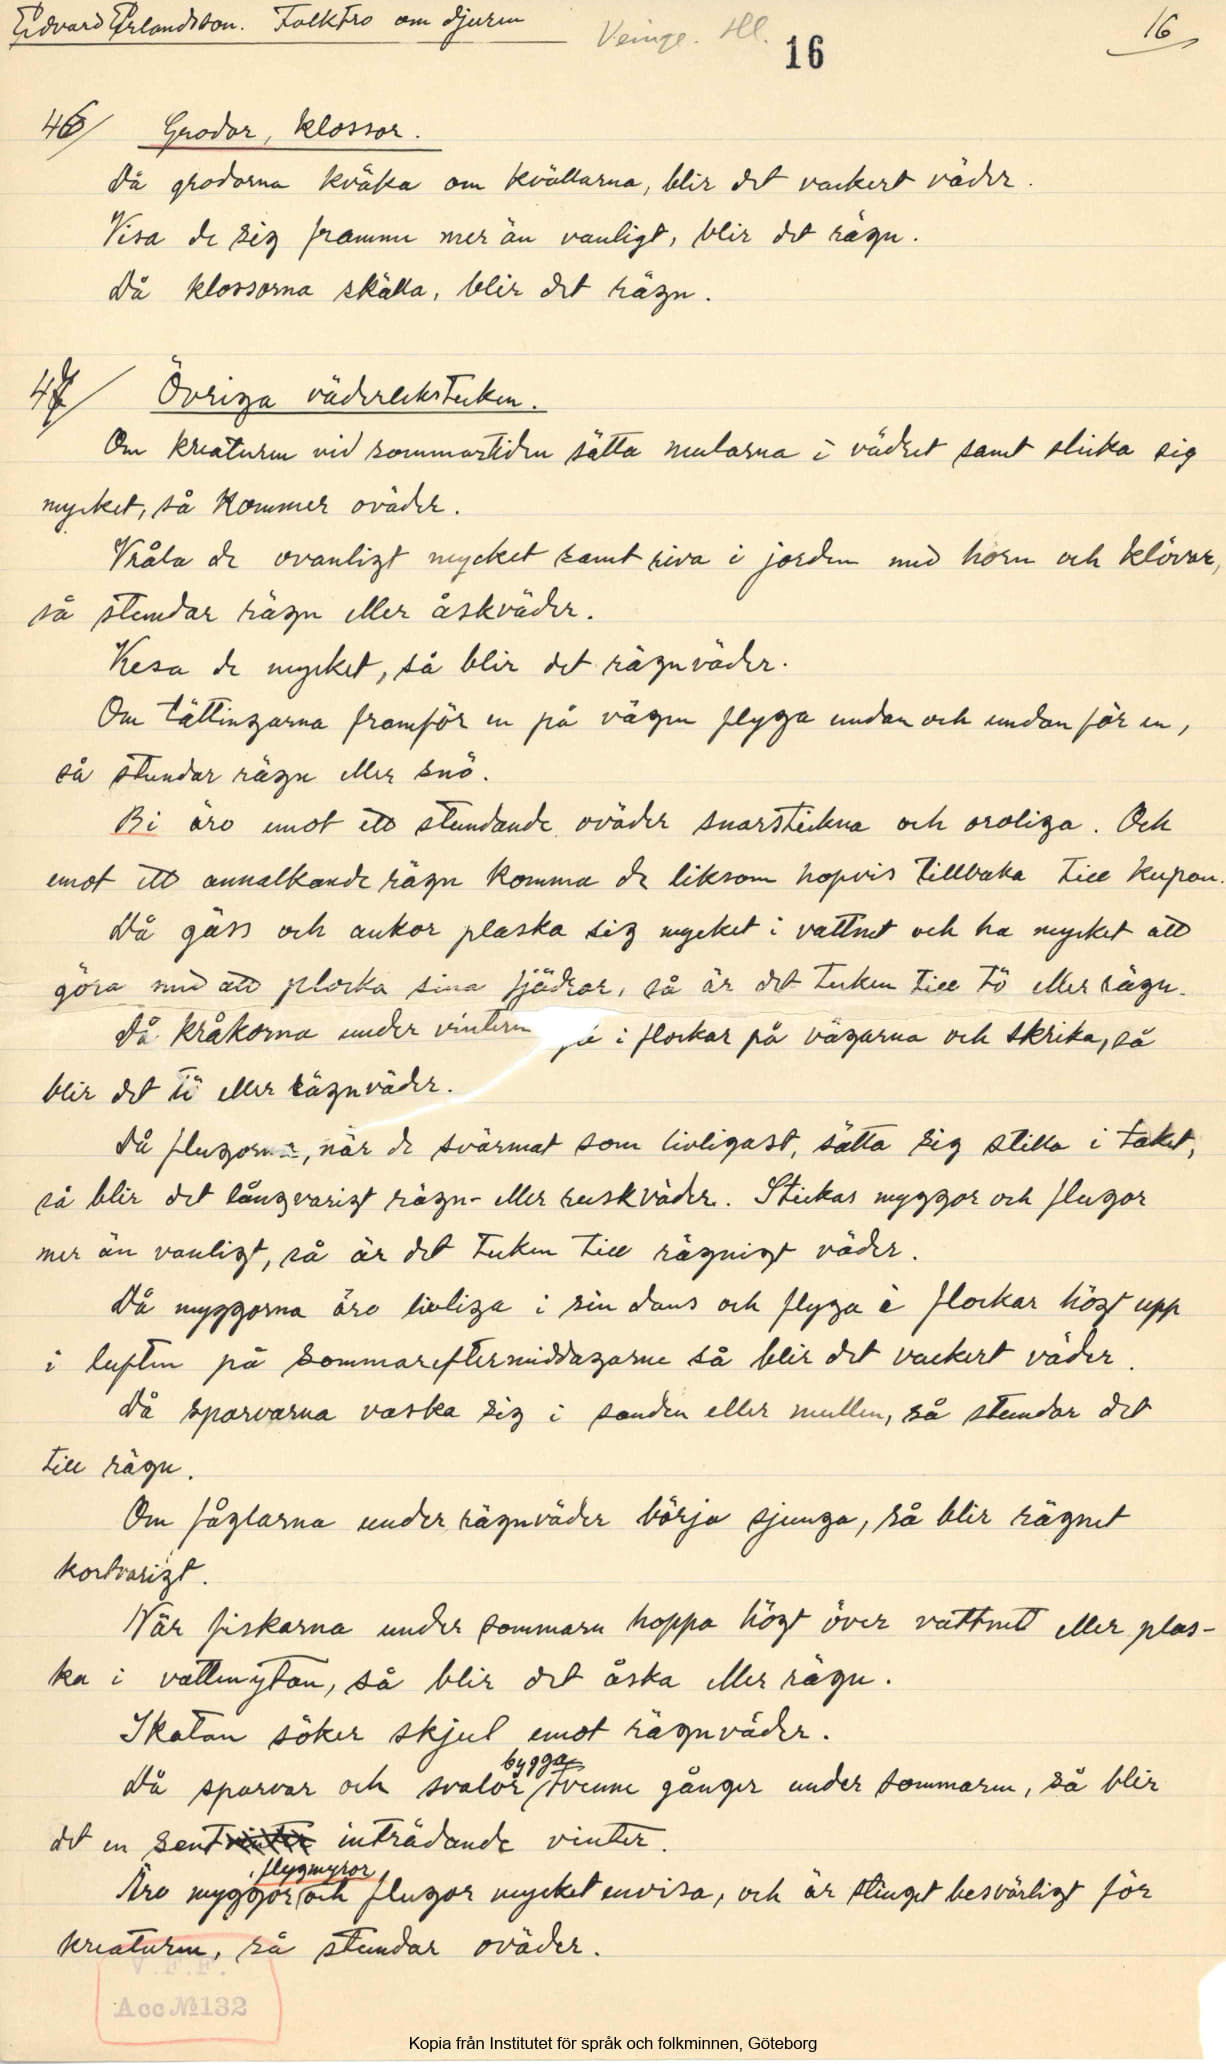 Edvard Erlandsson. Folktro om djuren Veinge. Hl. 16 16
46/ Grodor, klossor.
Då grodorna kväka om kvällarna, blir det vackert väder.
Visa de sig framme mer än vanligt, blir det rägn.
Då klossorna skälla, blir det rägn.
47/ Övriga väderlekstecken.
Om kreaturen vid sommartiden sätta mularna i vädret samt slicka sig
mycket, så kommer oväder.
Vråla de ovanligt mycket samt riva i jorden med horn och klövar,
så stundar rägn eller åskväder.
Kesa de mycket, så blir det rägnväder.
Om tättingarna framför en på vägen flyga undan och undan för en,
så stundar rägn eller snö.
Bi äro emot ett stundande oväder snarstickna och oroliga. Och
emot ett annalkande rägn komma de liksom hopvis tillbaka till kupan.
Då gäss och ankor plaska sig mycket i vattnet och ha mycket att
göra med att plocka sina fjädrar, så är det tecken till tö eller rägn.
Då kråkorna under vintern i flockar på vägarna och skrika, så
blir det tö eller rägnväder.
Då flugorna, när de svärmat som livligast, sätta sig stilla i taket,
så blir det långvarigt rägn- eller ruskväder. Stickas myggor och flugor
mer än vanligt, så är det tecken till rägnigt väder.
Då myggorna äro livliga i sin dans och flyga i flockar högt upp
i luften på sommareftermiddagarne så blir det vackert väder.
Då sparvarna vaska sig i sanden eller mullen, så stundar det
till rägn.
Om fåglarna under rägnväder börja sjunga, så blir rägnet
kortvarigt.
När fiskarna under sommaren hoppa högt över vattnet eller plas-
ka i vattenytan, så blir det åska eller rägn.
Skatan söker skjul emot rägnväder.
bygga
Då sparvar och svalor tvenne gånger under sommaren, så blir
det en sent inträdande vinter.
, flygmyror
Äro myggor och flugor mycket envisa, och är stinget besvärligt för
kreaturen, så stundar oväder.
V.F.F.
Acc №132
Kopia från Institutet för språk och folkminnen, Göteborg